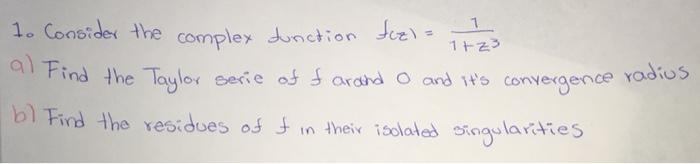 1. Consider the complex function f(z) = 1/1+z³
a) Find the Taylor serie of f arand 0 and it's convergence radius
b) Find the residues of f in their isolated singularities